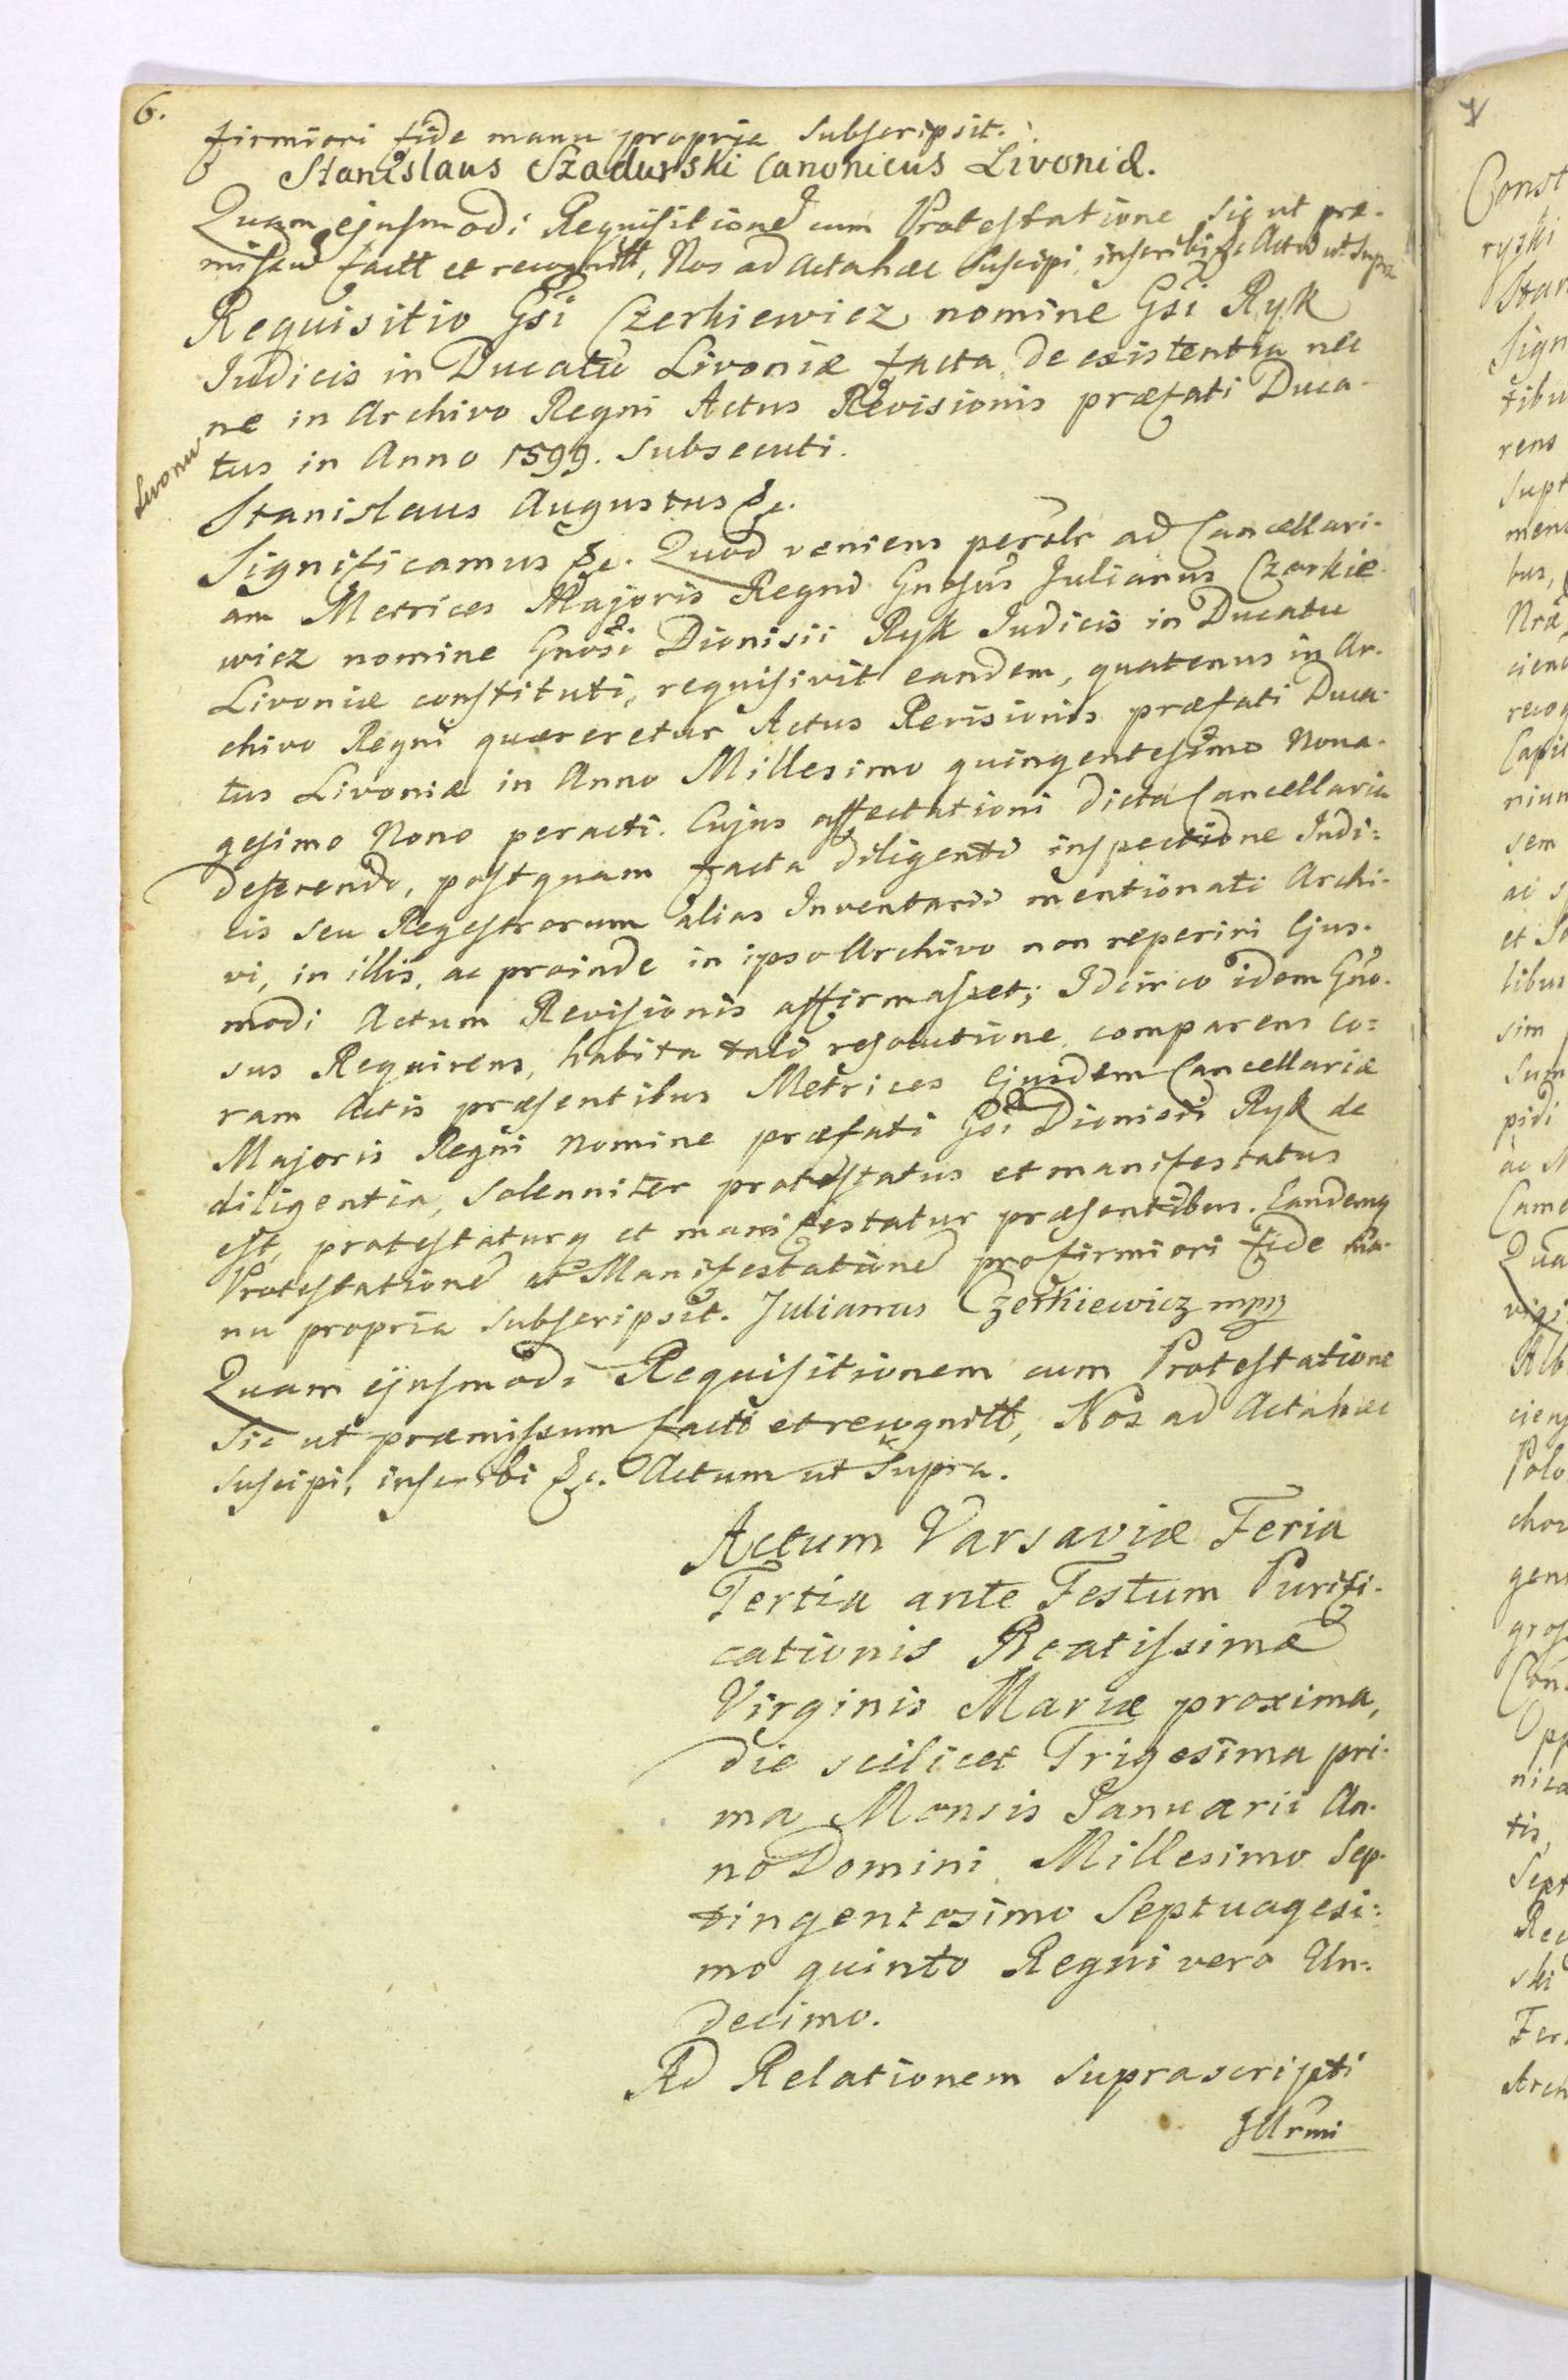 6.
firmiori fide manu propria subscripsit.
Stanislaus Szadurski Canonicus Livoniæ.
Quam ejusmodi Requisitione cum Protestatione sic ut præ-
missu factt et recognitt, Nos ad Acta hæc suscipi, inscribi &c Actu ut supra
Requisitio Gsi Czerkiewicz nomine Gsi Ryk
Judicis in Ducatu Livoniæ facta de existentia nec
ne in Archivo Regni Actus Revisionis præfati Duca-
tus in Anno 1599. subsecuti.
Stanislaus Augustus &c.
Significamus &c. Quod veniens persolr ad Cancellari-
am Metrices Majoris Regni Gnosus Julianus Czerkie-
wicz nomine Gnosi Dionisii Ryk Judicis in Ducatu
Livoniæ constituti, requisivit eandem, quatenus in Ar-
chivo Regni quæreretur Actus Revisionis præfati Duca-
tus Livoniæ in Anno Millesimo quingentesimo Nona-
gesimo Nono peracti. Cujus affectationi dicta Cancellaria
deferendo, postquam facta diligenti inspectione Indi-
cis seu Regestrorum alias Inventarii mentionati Archi-
vi, in illis, ac proinde in ipso Archivo non reperiri Ejus-
modi Actum Revisionis affirmasset; Idcirco idem Gno-
sus Requirens, habita tali resolutione comparens co-
ram Actis præsentibus Metrices Ejusdem Cancellariæ
Majoris Regni nomine præfati Gsi Dionisii Ryk de
diligentia, solenniter protestatus et manifestatus
est, protestaturq et manifestatur præsentibus. Eandemq
Protestatione et Manifestatione pro firmiori fide ma-
nu propria subscripsit. Julianus Czerkiewicz mpp
Quam ejusmodi Requisitionem cum Protestatione
sic ut præmissum factt et recognitt, Nos ad Acta hæc
suscipi, inscribi &c. Actum ut supra.
Actum Varsaviæ Feria
Tertia ante Festum Purifi-
cationis Beatissimæ
Virginis Mariæ proxima,
die scilicet Trigesima pri-
ma Mensis Januarii An-
no Domini Millesimo Sep-
tingentesimo Septuagesi-
mo quinto Regni vero Un-
decimo.
Ad Relationem suprascripti
Illrmi